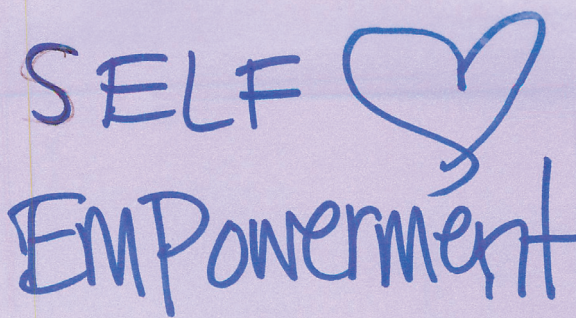 SELF
EmPowerment